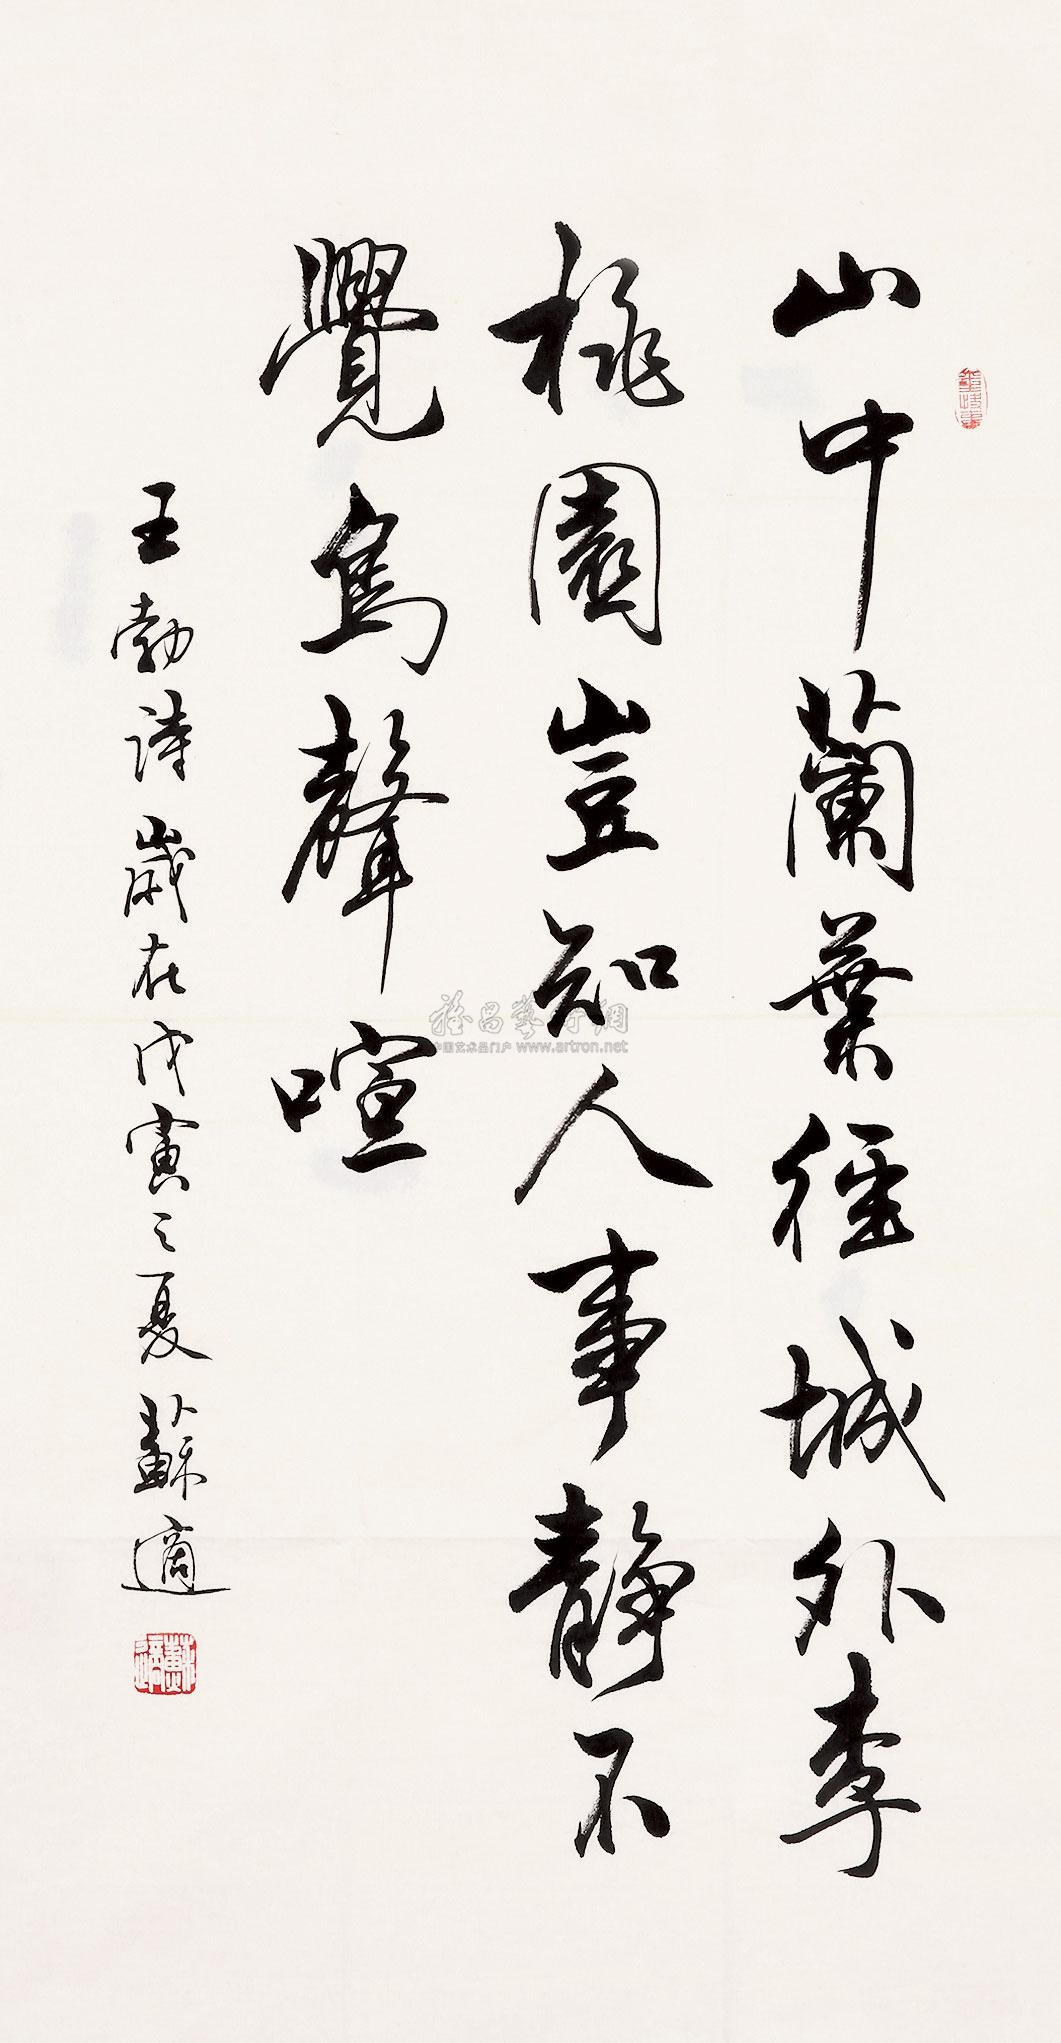 山中蘭葉徑城外李
桃園豈知人事靜不
覺鳥聲喧
王勃詩歲在戊寅之夏蘇適
蘇適
中国艺术品门户 www.artron.net